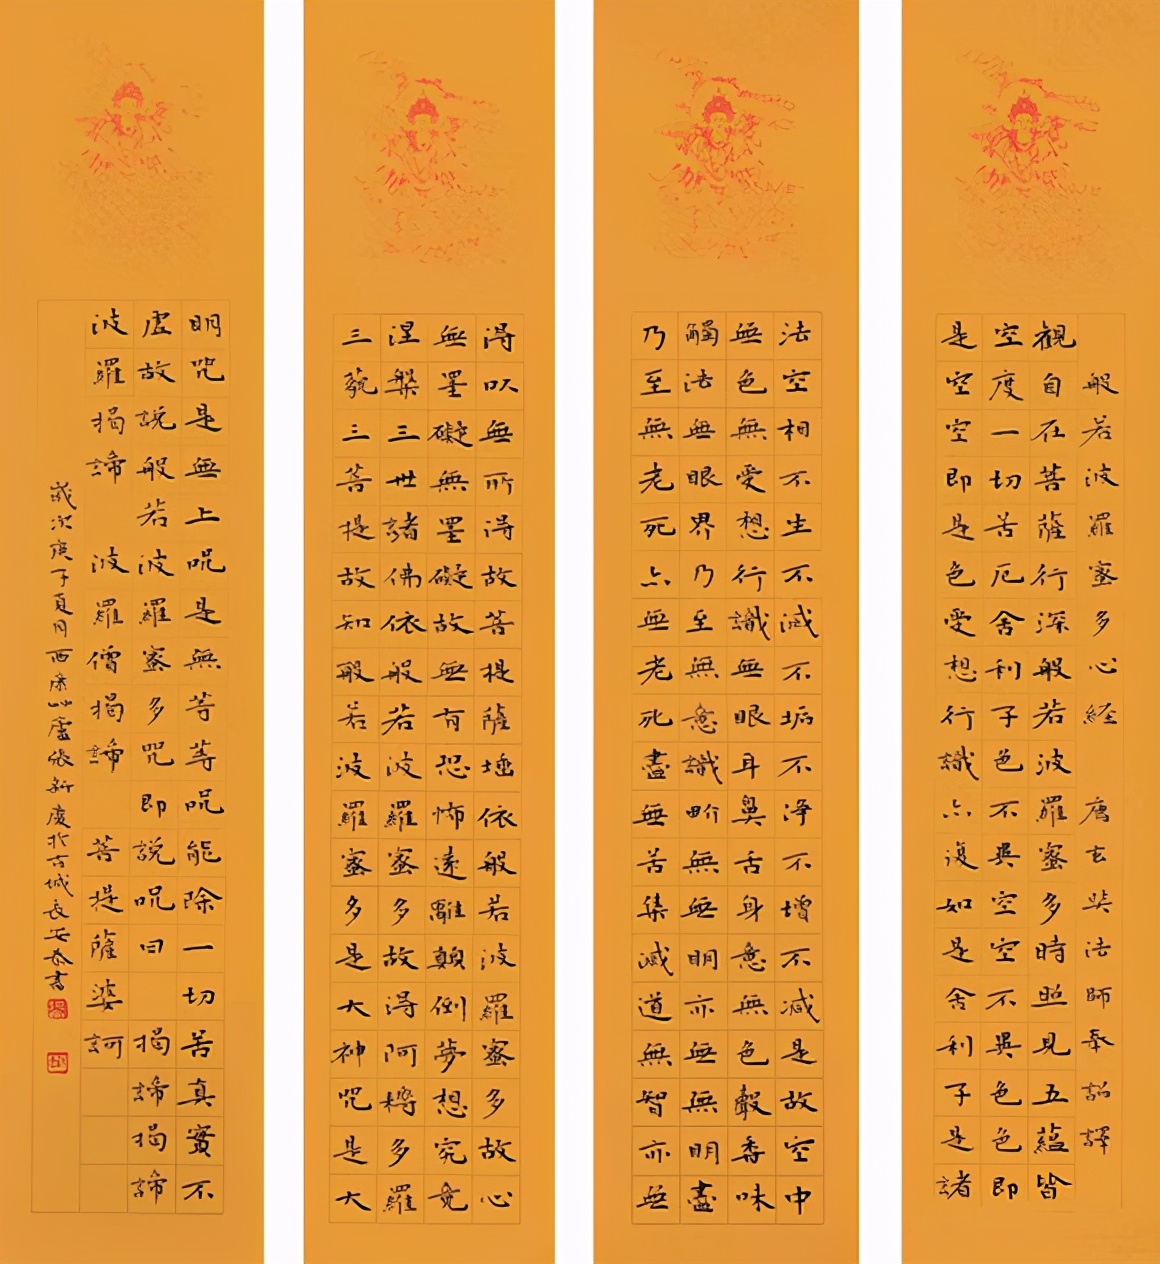 般若波羅蜜多心経 唐玄奘法師奉詔譯
観自在菩薩行深般若波羅蜜多時照見五蘊皆
空度一切苦厄舍利子色不異空空不異色色即
是空空即是色受想行識亦復如是舍利子是諸
法空相不生不滅不垢不淨不增不減是故空中
無色無受想行識無眼耳鼻舌身意無色聲香味
觸法無眼界乃至無意識界無無明亦無無明盡
乃至無老死亦無老死盡無苦集滅道無智亦無
得以無所得故菩提薩埵依般若波羅蜜多故心
無罣礙無罣礙故無有恐怖遠離顛倒夢想究竟
涅槃三世諸佛依般若波羅蜜多故得阿耨多羅
三藐三菩提故知般若波羅蜜多是大神咒是大
明咒是無上呪是無等等呪能除一切苦真實不
虛故說般若波羅蜜多咒即說呪曰 揭諦揭諦
波羅揭諦 波羅僧揭諦 菩提薩婆訶
歲次庚子夏月西康艸廬張新慶於古城長安恭書